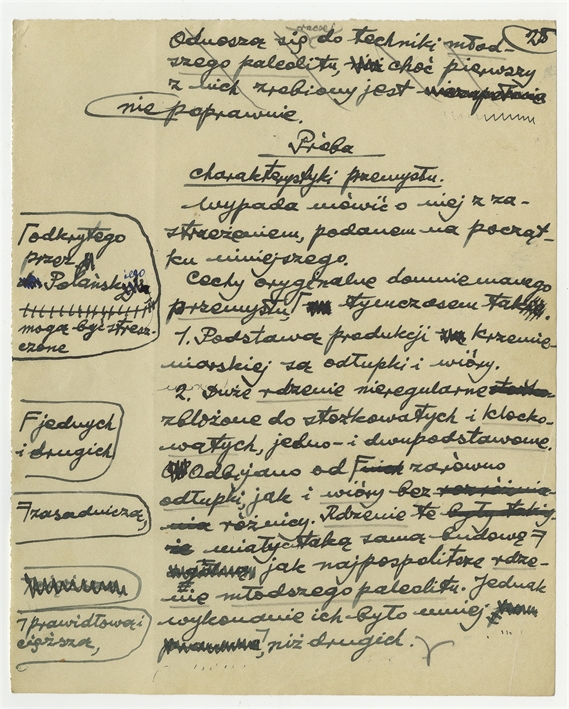 28
odnoszą się do techniki młod-
szego paleolitu, choć pierwszy
z nich zrobiony jest
nie poprawnie.
Próba
charakterystyki przemysłu.
Wypada mówić o niej z za-
strzeżeniem, podanem na począt-
ku niniejszego.
Cechy oryginalne domniemanego
przemysłu, Γ tymczasem
Γ odkrytego
przez
Polańskiego
mogą być stresz-
czone
1. Podstawą produkcji krzemie-
niarskiej są odłupki i wióry.
2. Duże rdzenie nieregularne
zbliżone do stożkowatych i klocko-
watych, jedno- i dwupodstawowe.
Odbijano od F zarówno
F jednych
i drugich
odłupki jak i wióry bez
różnicy. Rdzenie te
miały taką samą budowę 7
7 zasadniczą,
jak najpospolitsze rdze-
nie młodszego paleolitu. Jednak
wykonanie ich było mniej
7, niż drugich.
7 prawidłowa i